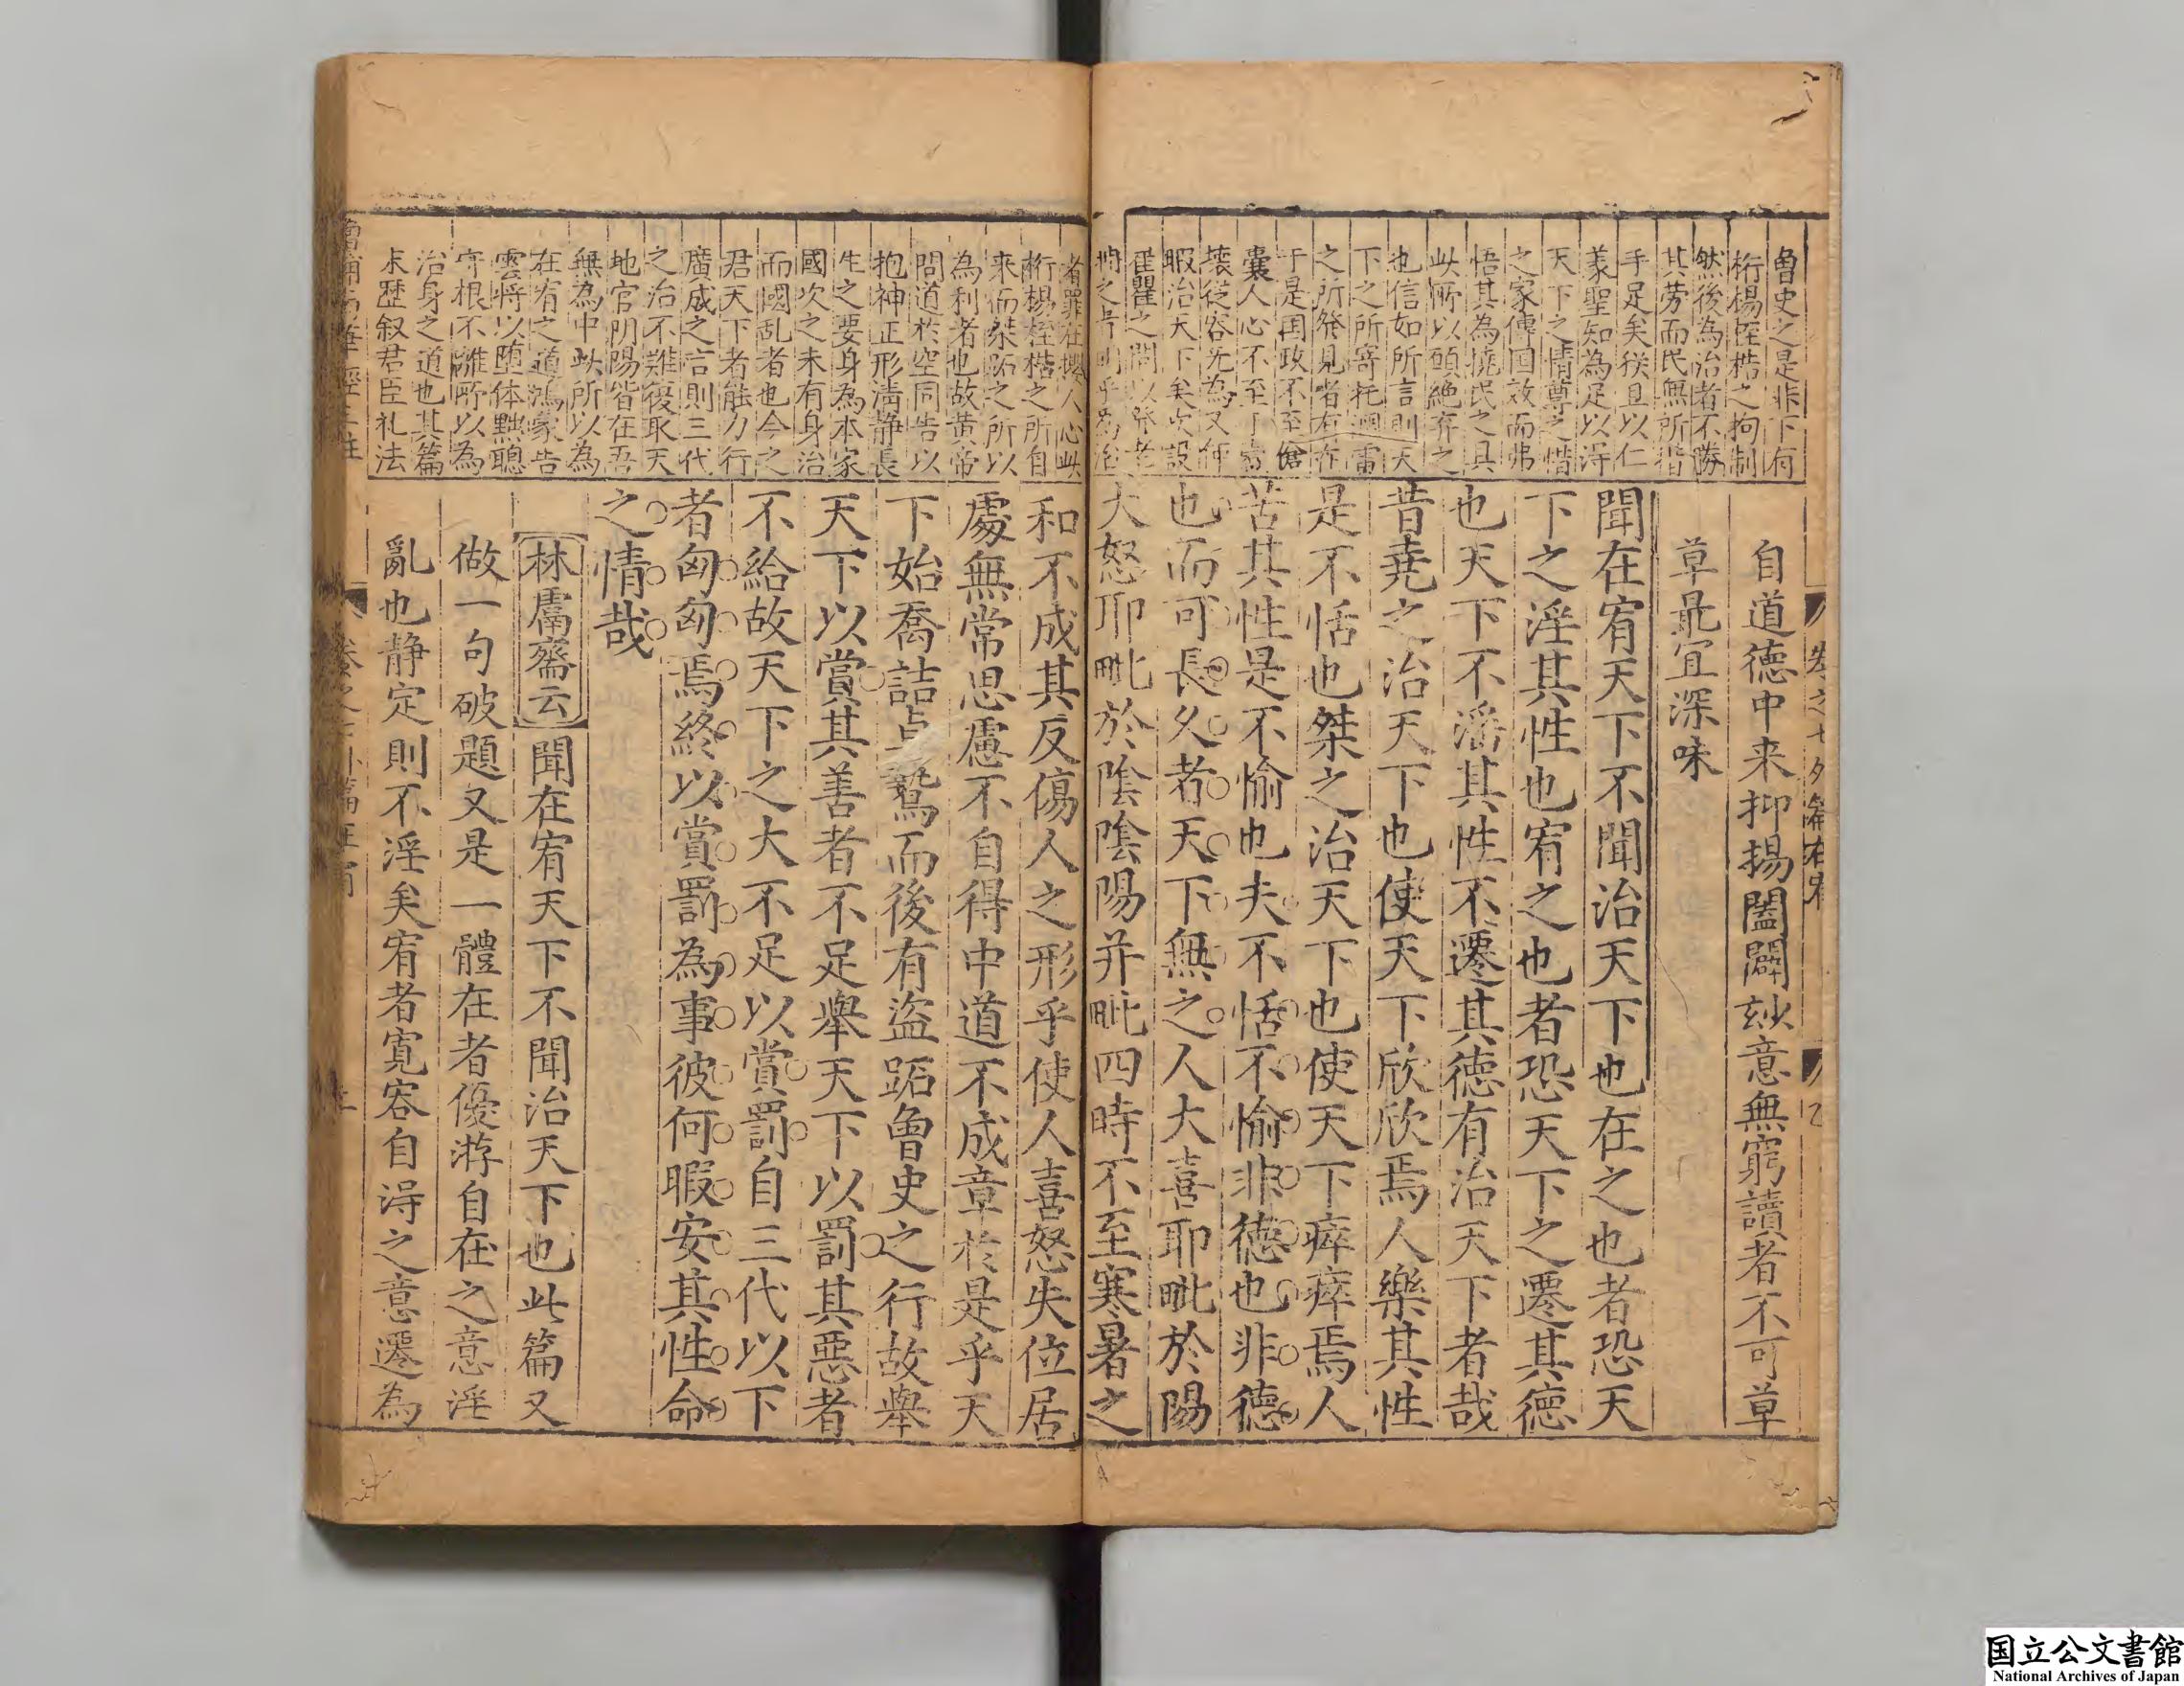 魯史之是非下有
桁楊桎梏之拘制
然後為治者不勝
其劳而民無所措
手足矣猶且以仁
義聖知為足以淂
天下之情尊之惜
之家傳囯效而弗
悟其為撓民之具
此所以願絶弃之
也信如所言則天
下之所寄托淵雷
之所發見者右在
于是囯政不至傖
囊人心不至
壞從容无為又何
暇治天下矣次設
崔瞿之問以
自道德中来抑揚闔闢玅意無窮讀者不可草
草㝡宜深味
聞在宥天下不聞治天下也在之也者恐天
下之淫其性也宥之也者恐天下之遷其德
也天下不滛其性不遷其徳有治天下者哉
昔堯之治天下也使天下欣欣焉人樂其性
是不恬也桀之治天下也使天下瘁瘁焉人
苦其性是不愉也夫不恬不愉非徳也非德
也而可長久者天下無之人大喜耶毗於陽
大怒耶毗於陰陰陽并毗四時不至寒暑之
者罪在攖人心此
桁楊桎梏之所自
来而桀跖之所以
為利者也故黄帝
問道於空同告以
抱神正形淸静長
生之要身為本家
國次之未有身治
而國乱者也今之
君天下者能力行
廣成之言則三代
之治不難復取天
地官阴陽皆在吾
無為中此所以為
在宥之道鴻蒙告
雲将以堕体黜聰
守根不離所以為
治身之道也其篇
末歴叙君臣礼法
和不成其反傷人之形乎使人喜怒失位居
處無常思慮不自得中道不成章於是乎天
下始喬詰卓鷙而後有盜跖魯史之行故舉
天下以賞其善者不足舉天下以罰其惡者
不給故天下之大不足以賞罰自三代以下
者匈匈焉終以賞罰為事彼何暇安其性命
之情哉
林鬳齋云聞在宥天下不聞治天下也此篇又
做一句破題又是一體在者優游自在之意淫
亂也静定則不淫矣宥者寛容自淂之意遷為
国立公文書館
National Archives of Japan